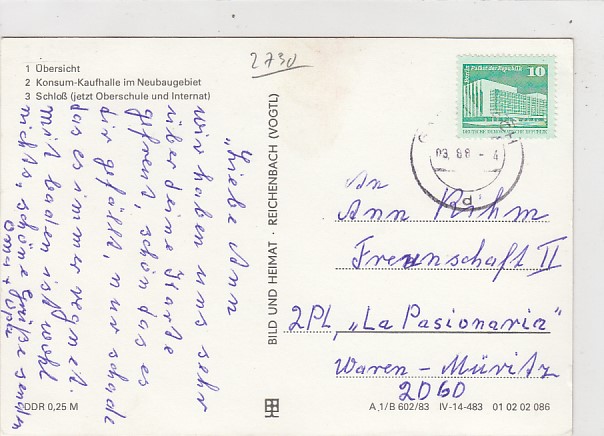 2730
1 Übersicht
2 Konsum-Kaufhalle im Neubaugebiet
3 Schloß (jetzt Oberschule und Internat)
"Liebe Ann
wir haben uns sehr
über deine Karte
gefreut, schön das es
dir gefällt, nur schade
das es immer regnet.
mit baden ist wohl
nichts, schöne Grüße senden
Oma + Opa
DDR 0,25 M
BILD UND HEIMAT · REICHENBACH (VOGTL)
Berlin Palast der Republik
10
DEUTSCHE DEMOKRATISCHE REPUBLIK
03. 88 - 4
d
An
Ann Rihm
Freunschaft II
2PL, "La Pasionaria"
Waren - Müritz
2060
A 1/B 602/83 IV-14-483 01 02 02 086